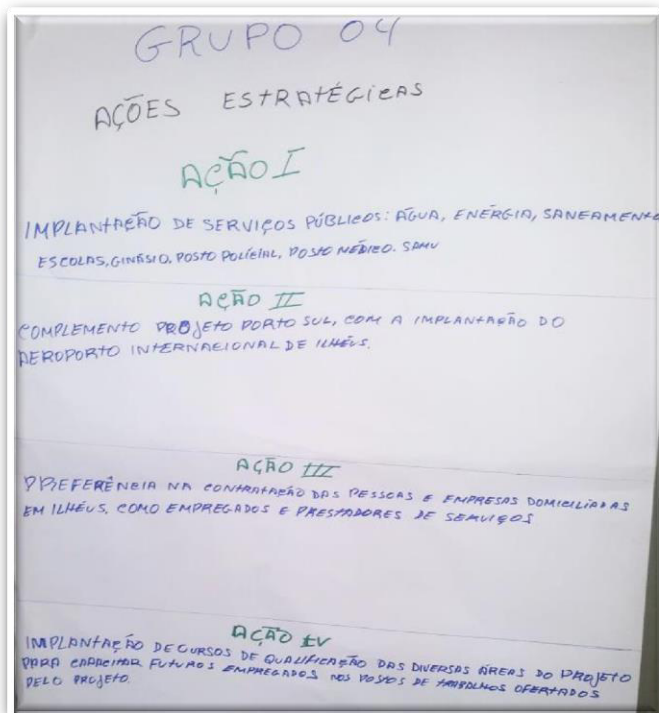 GRUPO 04
AÇÕES ESTRATÉGICAS
AÇÃO I
IMPLANTAÇÃO DE SERVIÇOS PÚBLICOS: ÁGUA, ENÉRGIA, SANEAMENTO
ESCOLAS, GINÁSIO, POSTO POLICIAL, POSTO MÉDICO. SAMU
AÇÃO II
COMPLEMENTO PROJETO PORTO SUL, COM A IMPLANTAÇÃO DO
AEROPORTO INTERNACIONAL DE ILHÉUS.
AÇÃO III
PREFERÊNCIA NA CONTRATAÇÃO DAS PESSOAS E EMPRESAS DOMICILIADAS
EM ILHÉUS, COMO EMPREGADOS E PRESTADORES DE SERVIÇOS
AÇÃO IV
IMPLANTAÇÃO DE CURSOS DE QUALIFICAÇÃO DAS DIVERSAS ÁREAS DO PROJETO
PARA CAPACITAR FUTUROS EMPREGADOS NOS POSTOS DE TRABALHOS OFERTADOS
PELO PROJETO.